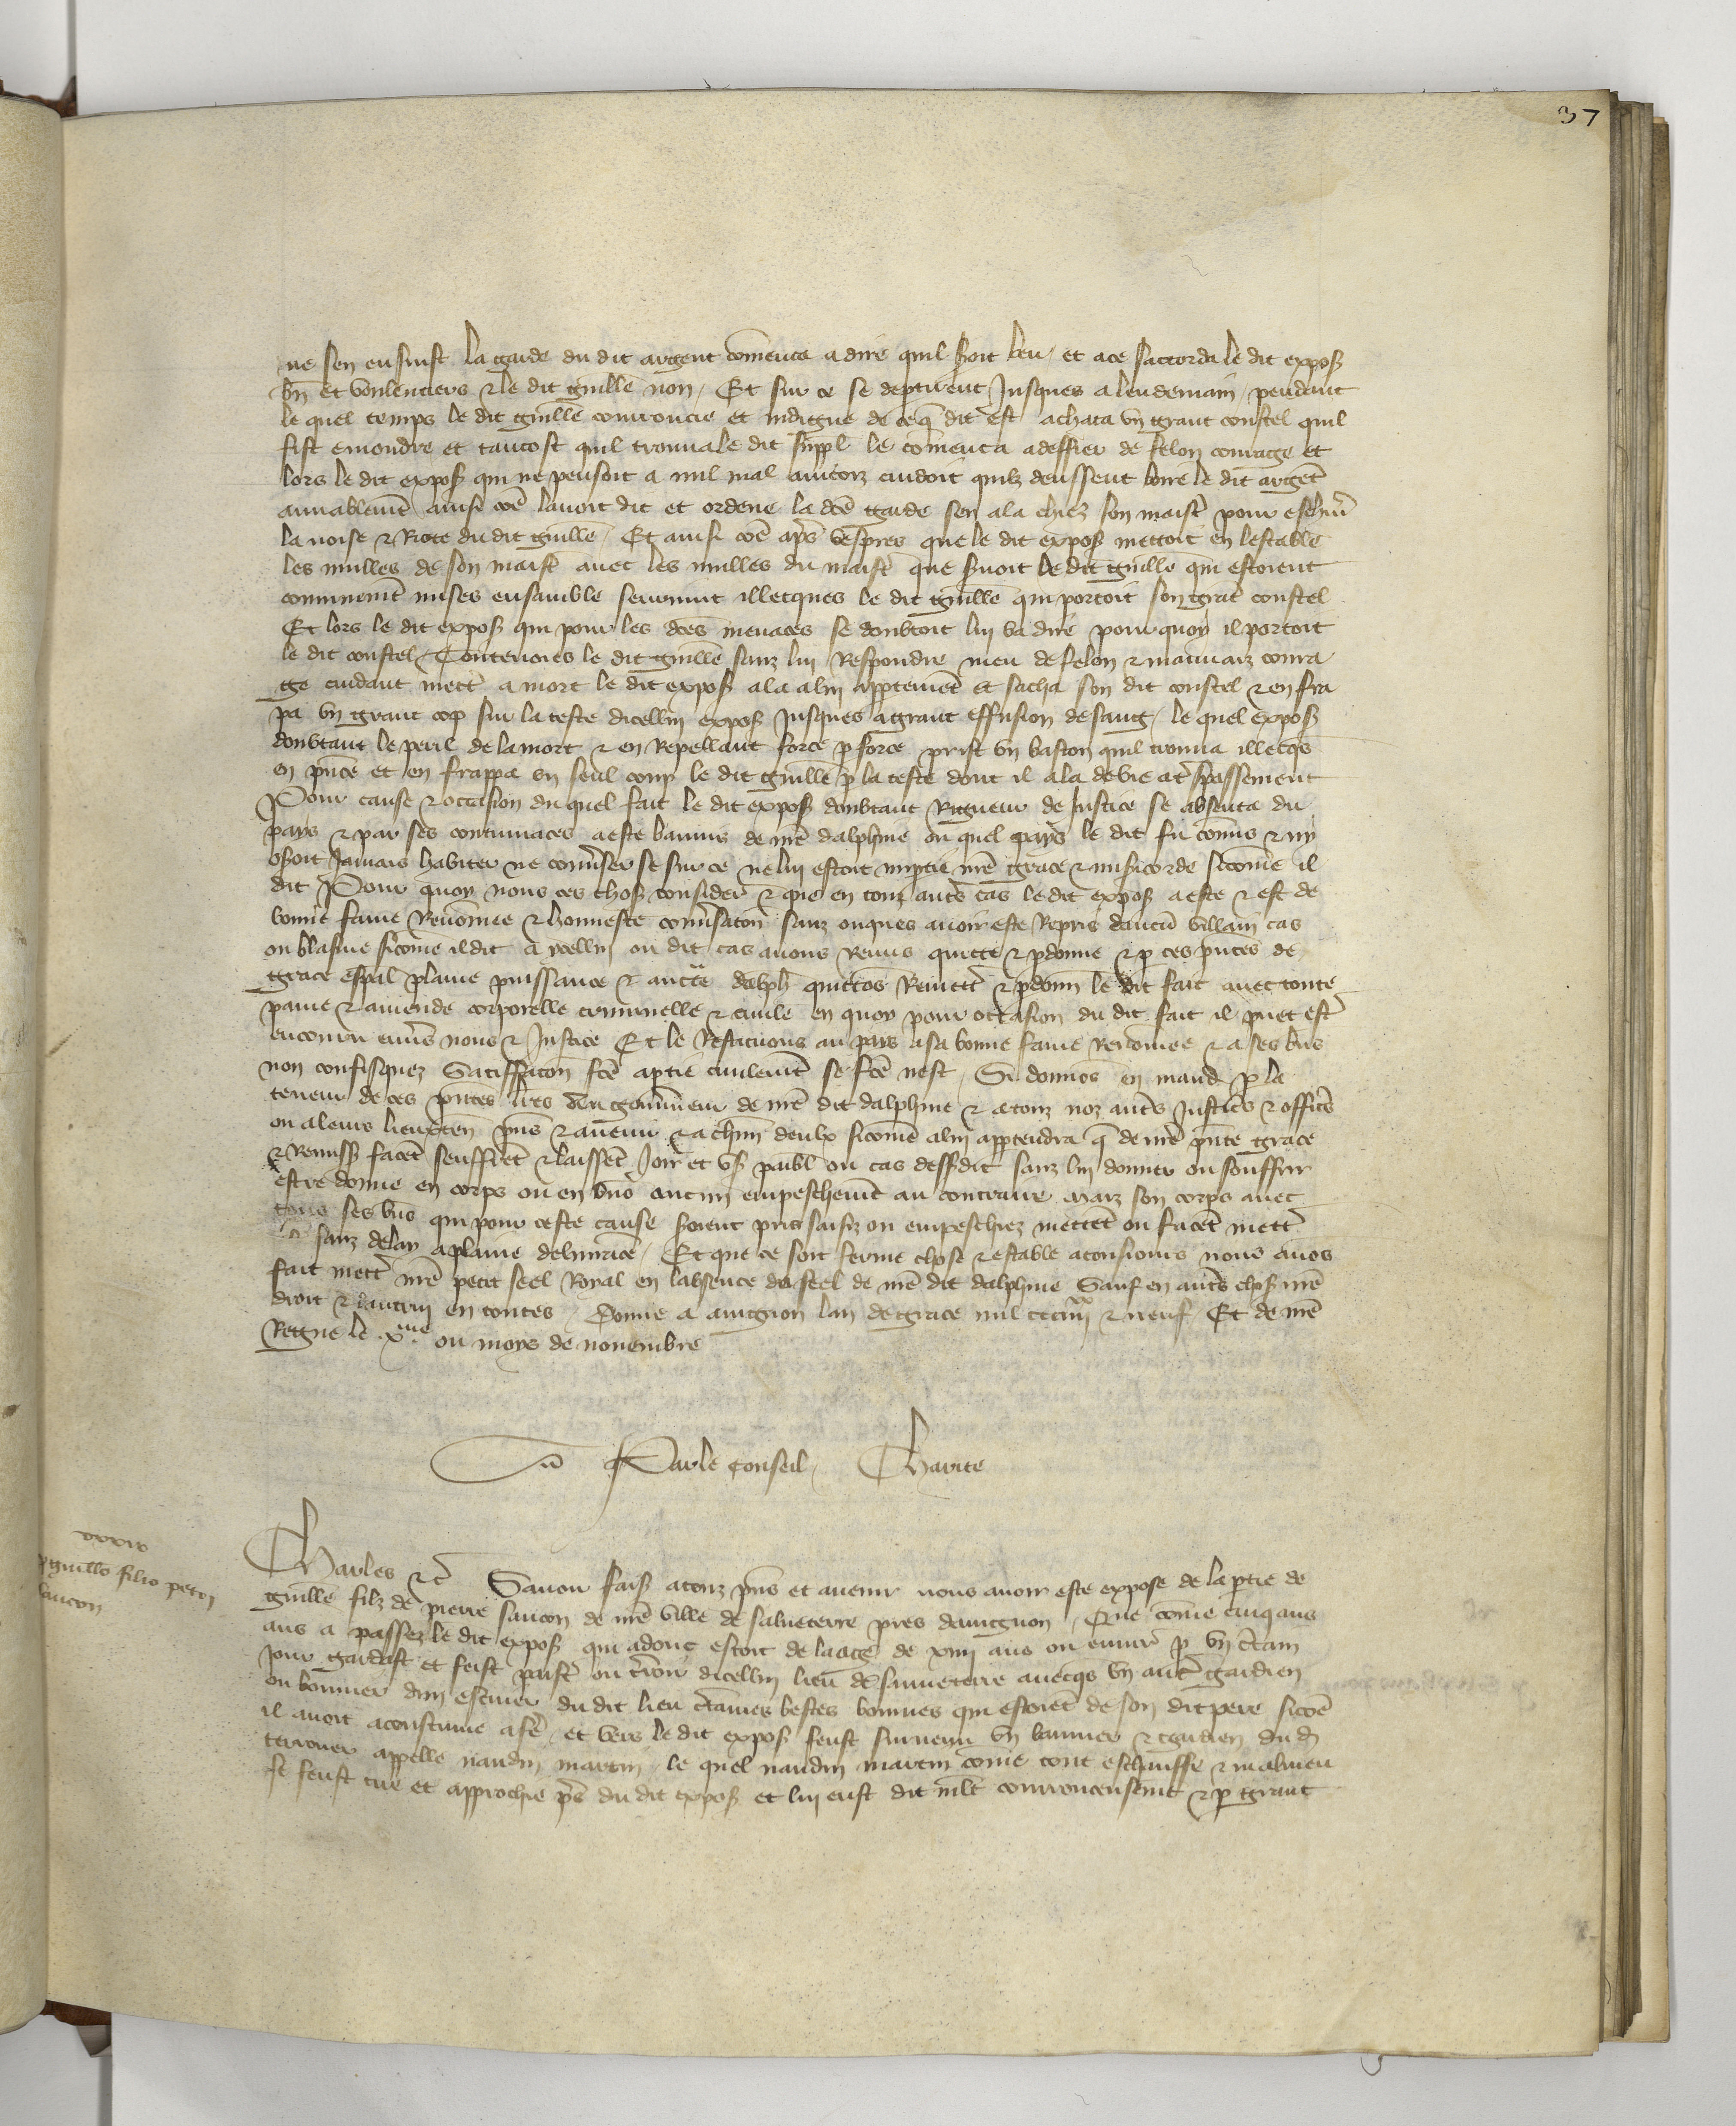 37
ne sen ensuist la garde du dit argent cōmenca a dire quil soit beu / et a ce saccorda le dit expoſ
bn̄ et voulentiers ⁊ le dit guille non / Et sur ce se deptirent Jusques a lendemain / pendant
le quel temps le dit guillē courroucie et indigne de ce q̄ dit est achata vn grant coustel quil
fist emoudre et tantost quil trouua le dit suppl le cōmenca a deffier de felon courage et
lors le dit expoſ qui ne pensoit a nul mal aincoiz cuidoit quilz deussent boire le dit argēt
amiablemēt ainsi cōe lauoit dit et ordene la dcē garde sen ala chiez son maistr̄ pour escheur̄
la noise ⁊ Riote du dit guillē / Et ainsi cōe apr̄s vespres que le dit expoſ mettoit en lestable
les mulles de son maistr̄ auec les mulles du maistr̄ que s̄uoit le dit guillē qui estoient
cōmunemt̄ mises ensamble seuruint illecques le dit guillē qui portoit son grāt coustel
Et lors le dit expoſ qui pour les dc̄es menaces se doubtoit lui va dire pour quoy il portoit
le dit coustel / Toutevoies le dit guillē sanz lui Respondre meu de felon ⁊ mauuaiz coura
ge cuidant mectr̄ a mort le dit expoſ ala a lui apptement Et sacha son dit coustel ⁊ en fra
pa vn grant cop sur la teste dicellui expoſ Jusques a grant effusion de sang / le quel expoſ
doubtant le peril de la mort ⁊ en Repellant force p̱ force prist vn baston quil trouua illecqs
en pn̄ce et en frappa vn seul coup le dit guillē p̱ la teste dont il ala de vie a tr̄spassement
Pour cause ⁊ occasion du quel fait le dit expoſ doubtant Rigueur de Justice se absenta du
pays ⁊ par ses contumaces a este bannis de nr̄e dalphine ou quel pays le dit fu cōmis ⁊ ny
osoit Jamais habiter ne conūser se sur ce ne lui estoit impartie nr̄e grace ⁊ misicorde sicōme il
dit Pour quoy nous ces choſ consider̄ ⁊ que en touz autr̄s cas le dit expoſ a este ⁊ est de
bonne fame Renōmee ⁊ honneste conūsatōn sanz onques auoir este Repris daucū villain cas
ou blasme sicōme il dit a ycellui ou dit cas auons Remis quitte ⁊ pdonne ⁊ p̱ ces pn̄tes de
grace esp̄al plaine puissance ⁊ auctē dalph̄ quittōs Remettr̄ ⁊ pdonn̄ le dit fait auec toute
paine ⁊ amende corporelle criminelle ⁊ ciuile en quoy pour occasion du dit fait il puet estr̄
encouru enūs nous ⁊ Justice Et le Restituons au pays a sa bonne fame Renōmee ⁊ a ses bn̄s
non confisquez Satiffacon fcē a ptie ciuilemt̄ se fcē nest / Si donnōs en mand p̱ la
teneur de ces pn̄tes lr̄es au gouūneur de nr̄e dit dalphine ⁊ a touz noz autr̄s Justic̄s ⁊ offic̄s
ou a leurs lieuxten̄ pn̄s ⁊ auenir ⁊ a chūn deulx sicōme a lui apptendra q̄ de nr̄e pn̄te grace
⁊ Remiss̄ facēt seuffrēt ⁊ laissēt Joir̄ et vſ paibl̄ ou cas dessudit sanz lui donner ou souffrir
estre donne en corps ou en bn̄s aucun empeschemt̄ au contraire maiz son corps auec
tous ses bn̄s qui pour ceste cause soient pris saisiz ou empeschiez mettēt ou facēt mettr̄
sanz delay a plaine deliurāce / Et que ce soit ferme chose ⁊ estable a tousiours nous auōs
fait mettr̄ nr̄e petit seel Royal en labsence du seel de nr̄e dit dalphine Sauf en autr̄s choſ nr̄e
droit ⁊ lautrui en toutes / Donne a auignon lan de grace mil ccciiij ⁊ neuf / Et de nr̄e
Regne le .x.me ou moys de nouembre
Par le conseil / Charite
pguillō filio petri
saucon
Charles ⁊c̄ Sauoir faiſ a touz pn̄s et auenir nous auoir este expose de la ptie de
guillē filz de pierre saucon de nr̄e ville de salueterre pres dauignon / Que cōme cinq ans
ans a passez le dit expoſ qui adonc estoit de laage de xiiij ans ou enuir̄ p̱ vn c̄tain
Jour gardast et feist paistr̄ ou t̄rouer dicellui lieu de sauueterre auecqs vn autr̄ gardien
ou bouuier dun escuier du dit lieu c̄taines bestes bouines qui estoiēt de son dit pere sicōe
il auoit acoustume a fe̅ / et vers le dit expoſ feust suruenu vn bannier ⁊ gardien du d̄
terrouer appelle naudin martin / le quel naudin martin cōme tout eschauffe ⁊ malmeu
se feust tire et approchie pr̄s du dit expoſ et lui eust dit mlt̄ courroucensemt̄ ⁊ p̱ grant